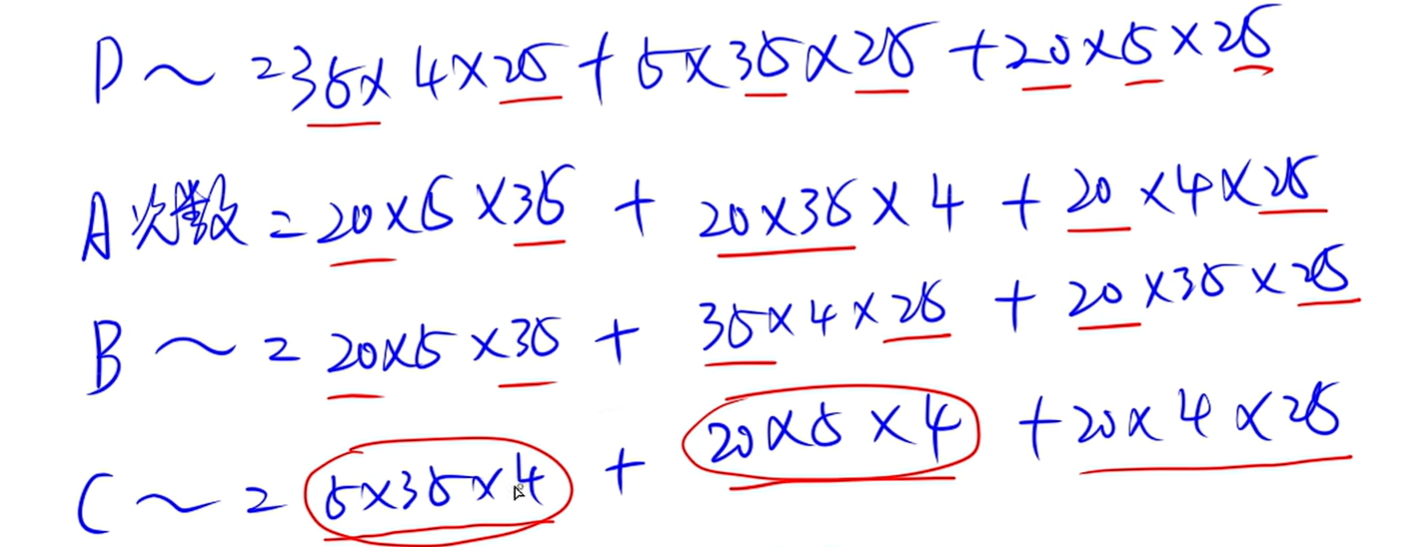 D ~ = 35×4×25 + 5×35×25 + 20×5×25
A次数 = 20×5×35 + 20×35×4 + 20×4×25
B ~ = 20×5×35 + 35×4×25 + 20×35×25
C ~ = 5×35×4 + 20×5×4 + 20×4×25